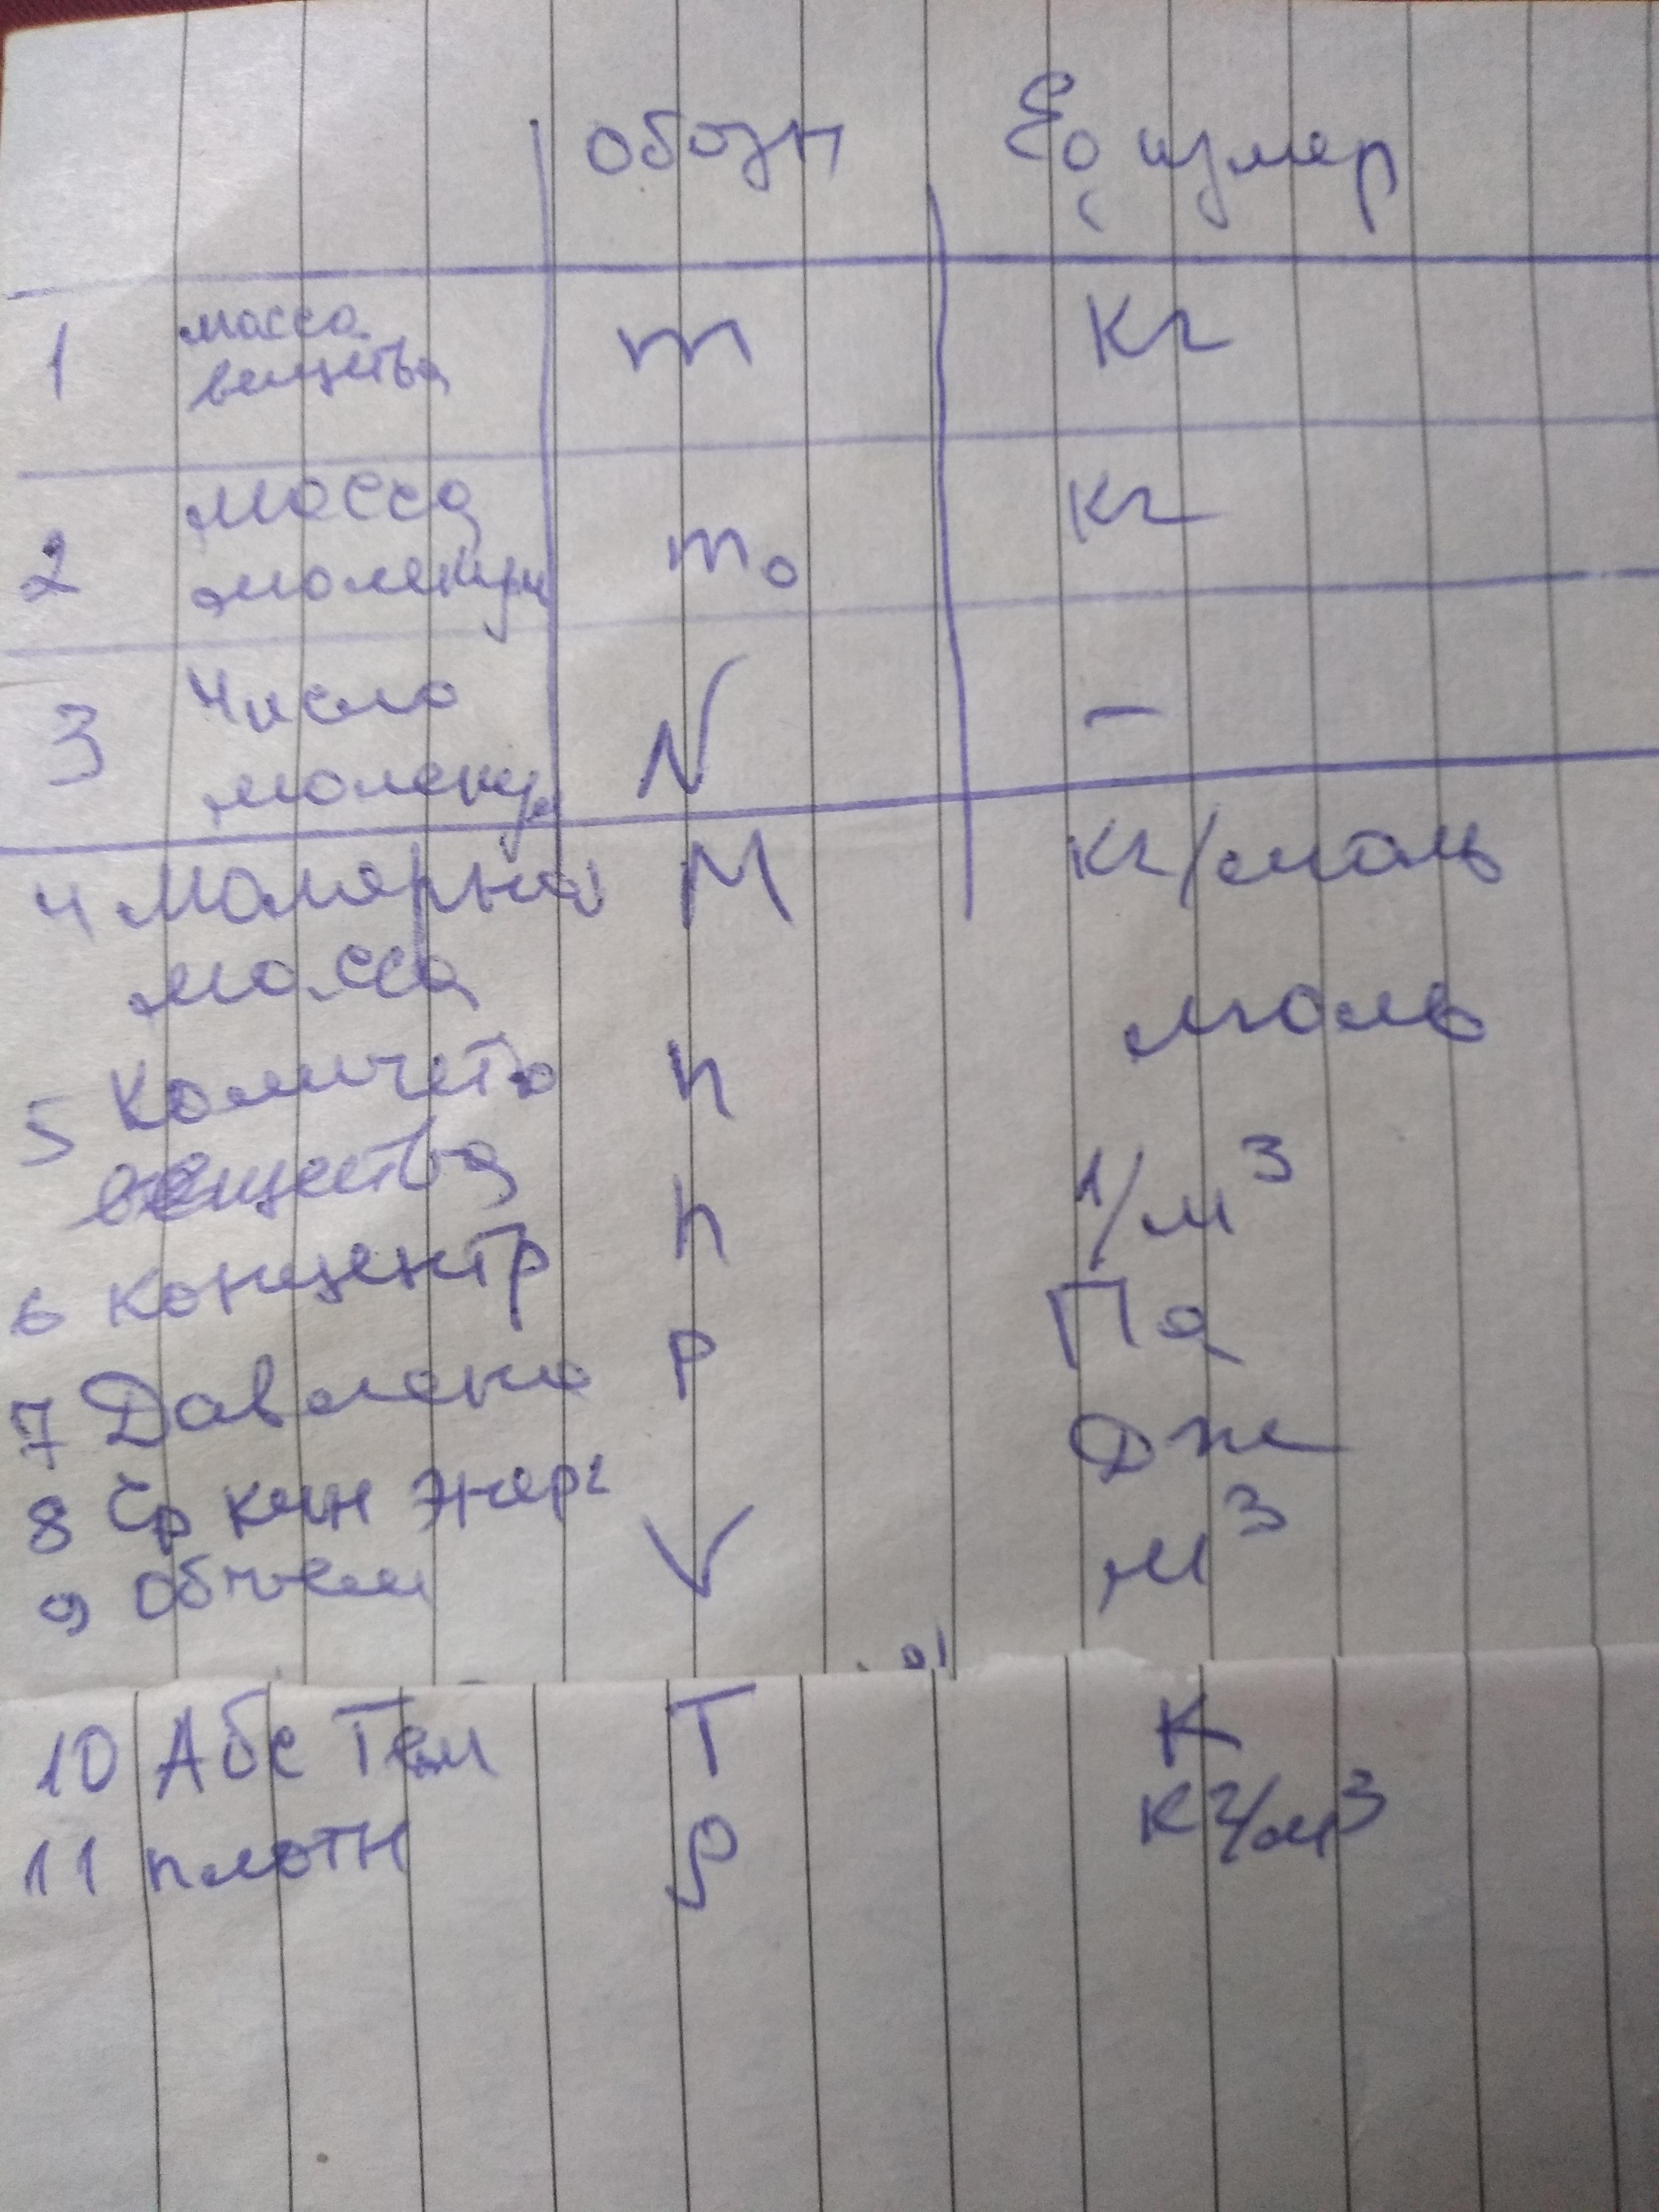 обозн Ед измер
1 масса m кг
вещества
2 масса m₀ кг
молекулы
3 Число N –
молекул
4 Молярная M кг/моль
масса
5 Количество n моль
вещества
6 концентр n 1/м³
7 Давлени P Па
8 Ср кин энерг Дж
9 объем V м³
10 Абс Тем T К
11 плотн ρ кг/м³